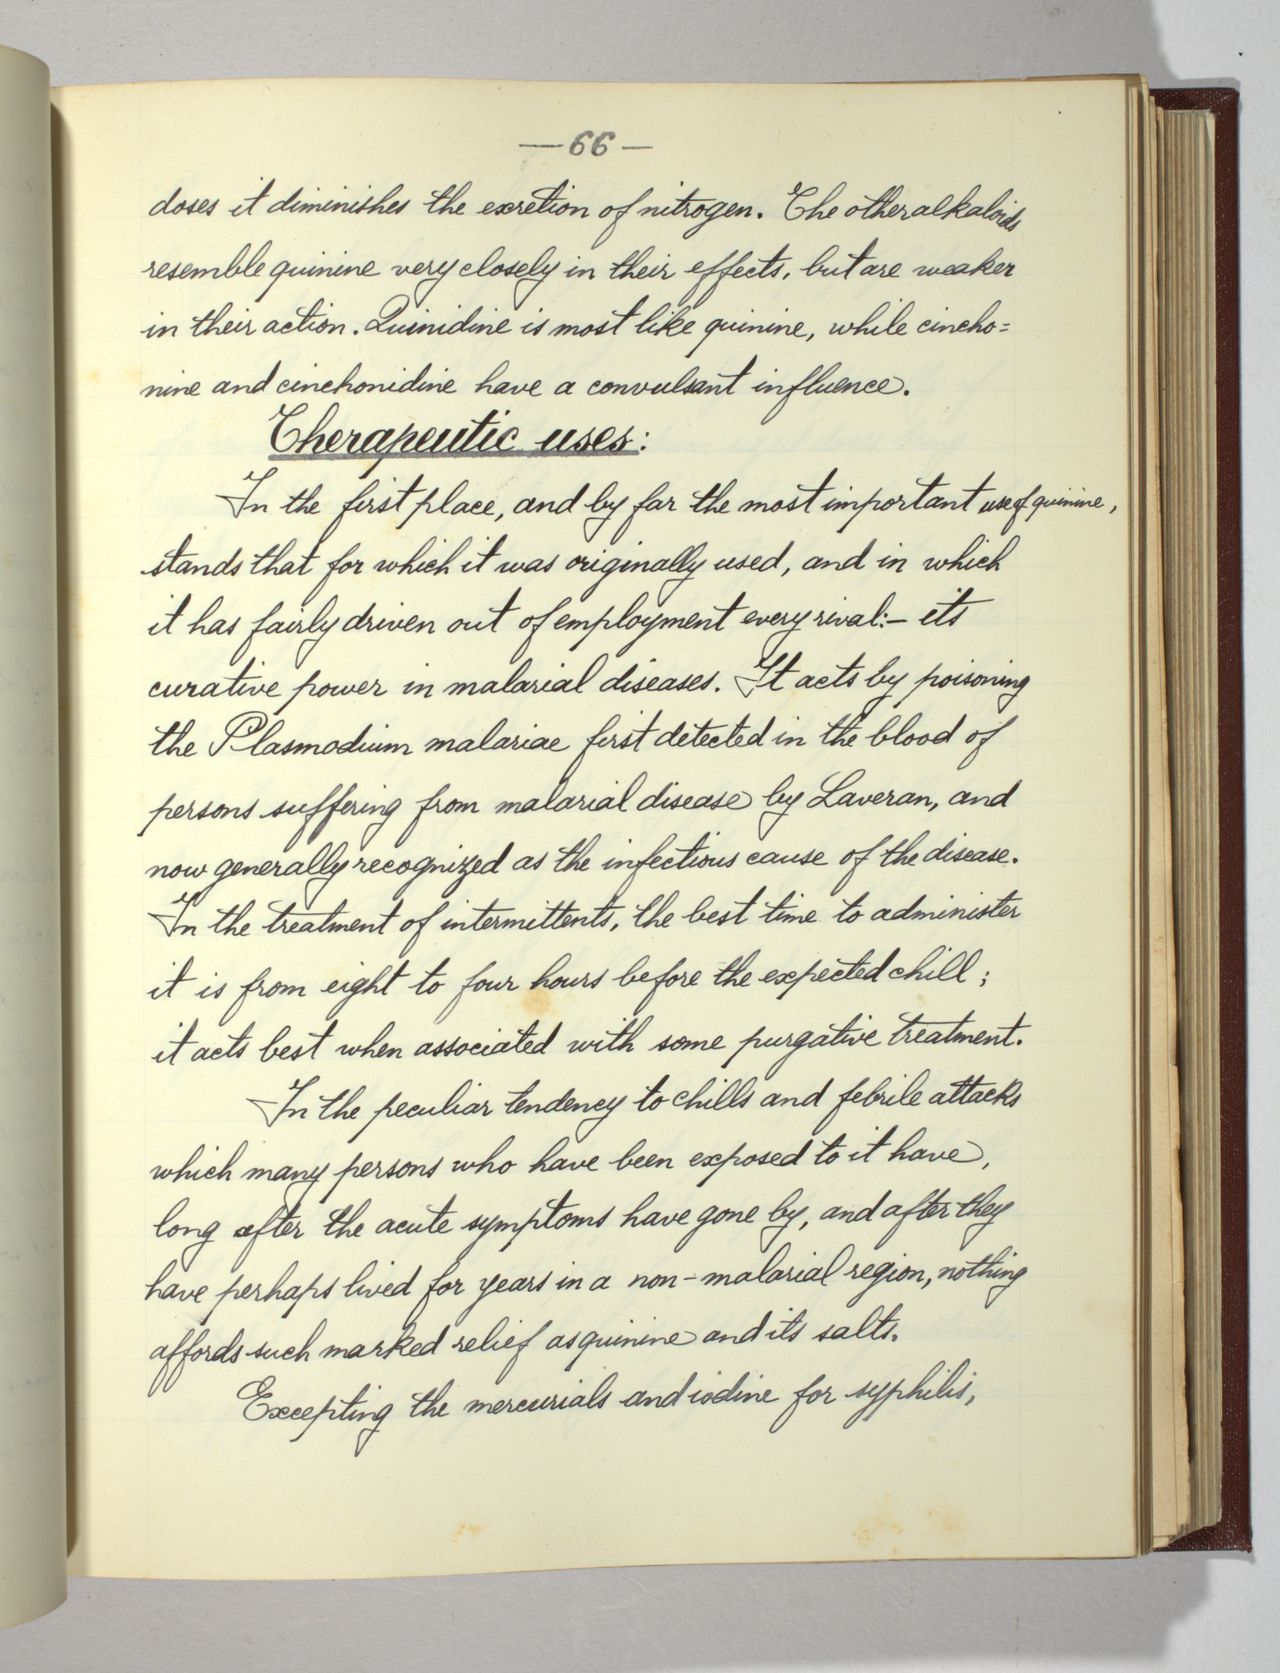 —66—
doses it diminishes the excretion of nitrogen. The other alkaloids
resemble quinine very closely in their effects, but are weaker
in their action. Quinidine is most like quinine, while cincho=
nine and cinchonidine have a convulsant influence.
Therapeutic uses:
In the first place, and by far the most important use of quinine,
stands that for which it was originally used, and in which
it has fairly driven out of employment every rival:— its
curative power in malarial diseases. It acts by poisoning
the Plasmodium malariae first detected in the blood of
persons suffering from malarial disease by Laveran, and
now generally recognized as the infectious cause of the disease.
In the treatment of intermittents, the best time to administer
it is from eight to four hours before the expected chill;
it acts best when associated with some purgative treatment.
In the peculiar tendency to chills and febrile attacks
which many persons who have been exposed to it have,
long after the acute symptoms have gone by, and after they
have perhaps lived for years in a non-malarial region, nothing
affords such marked relief as quinine and its salts.
Excepting the mercurials and iodine for syphilis,